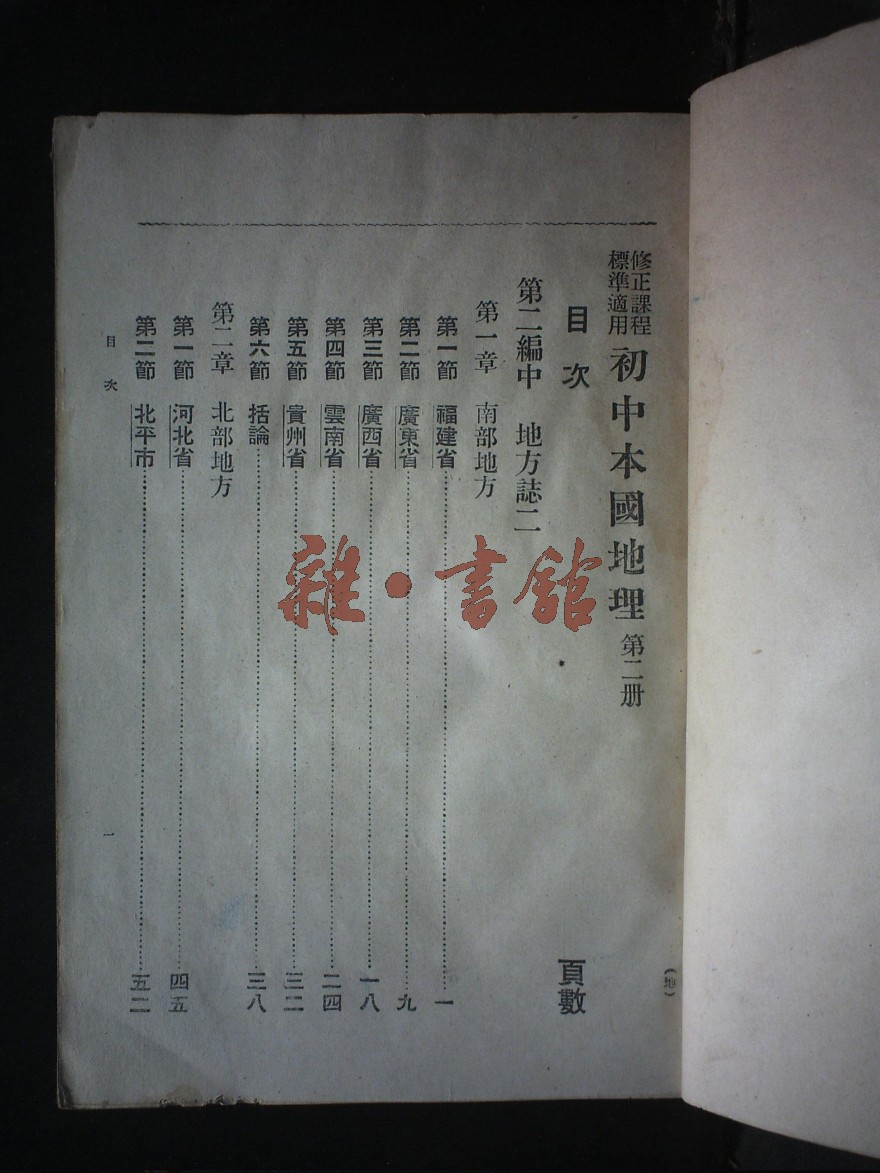 修正課程標準適用 初中本國地理 第二册
(地)
目次
頁數
第二編中 地方誌二
第一章 南部地方
第一節 福建省……一
第二節 廣東省……九
第三節 廣西省……一八
第四節 雲南省……二四
第五節 貴州省……三二
第六節 括論……三八
第二章 北部地方
第一節 河北省……四五
第二節 北平市……五二
目次
一
雜·書館